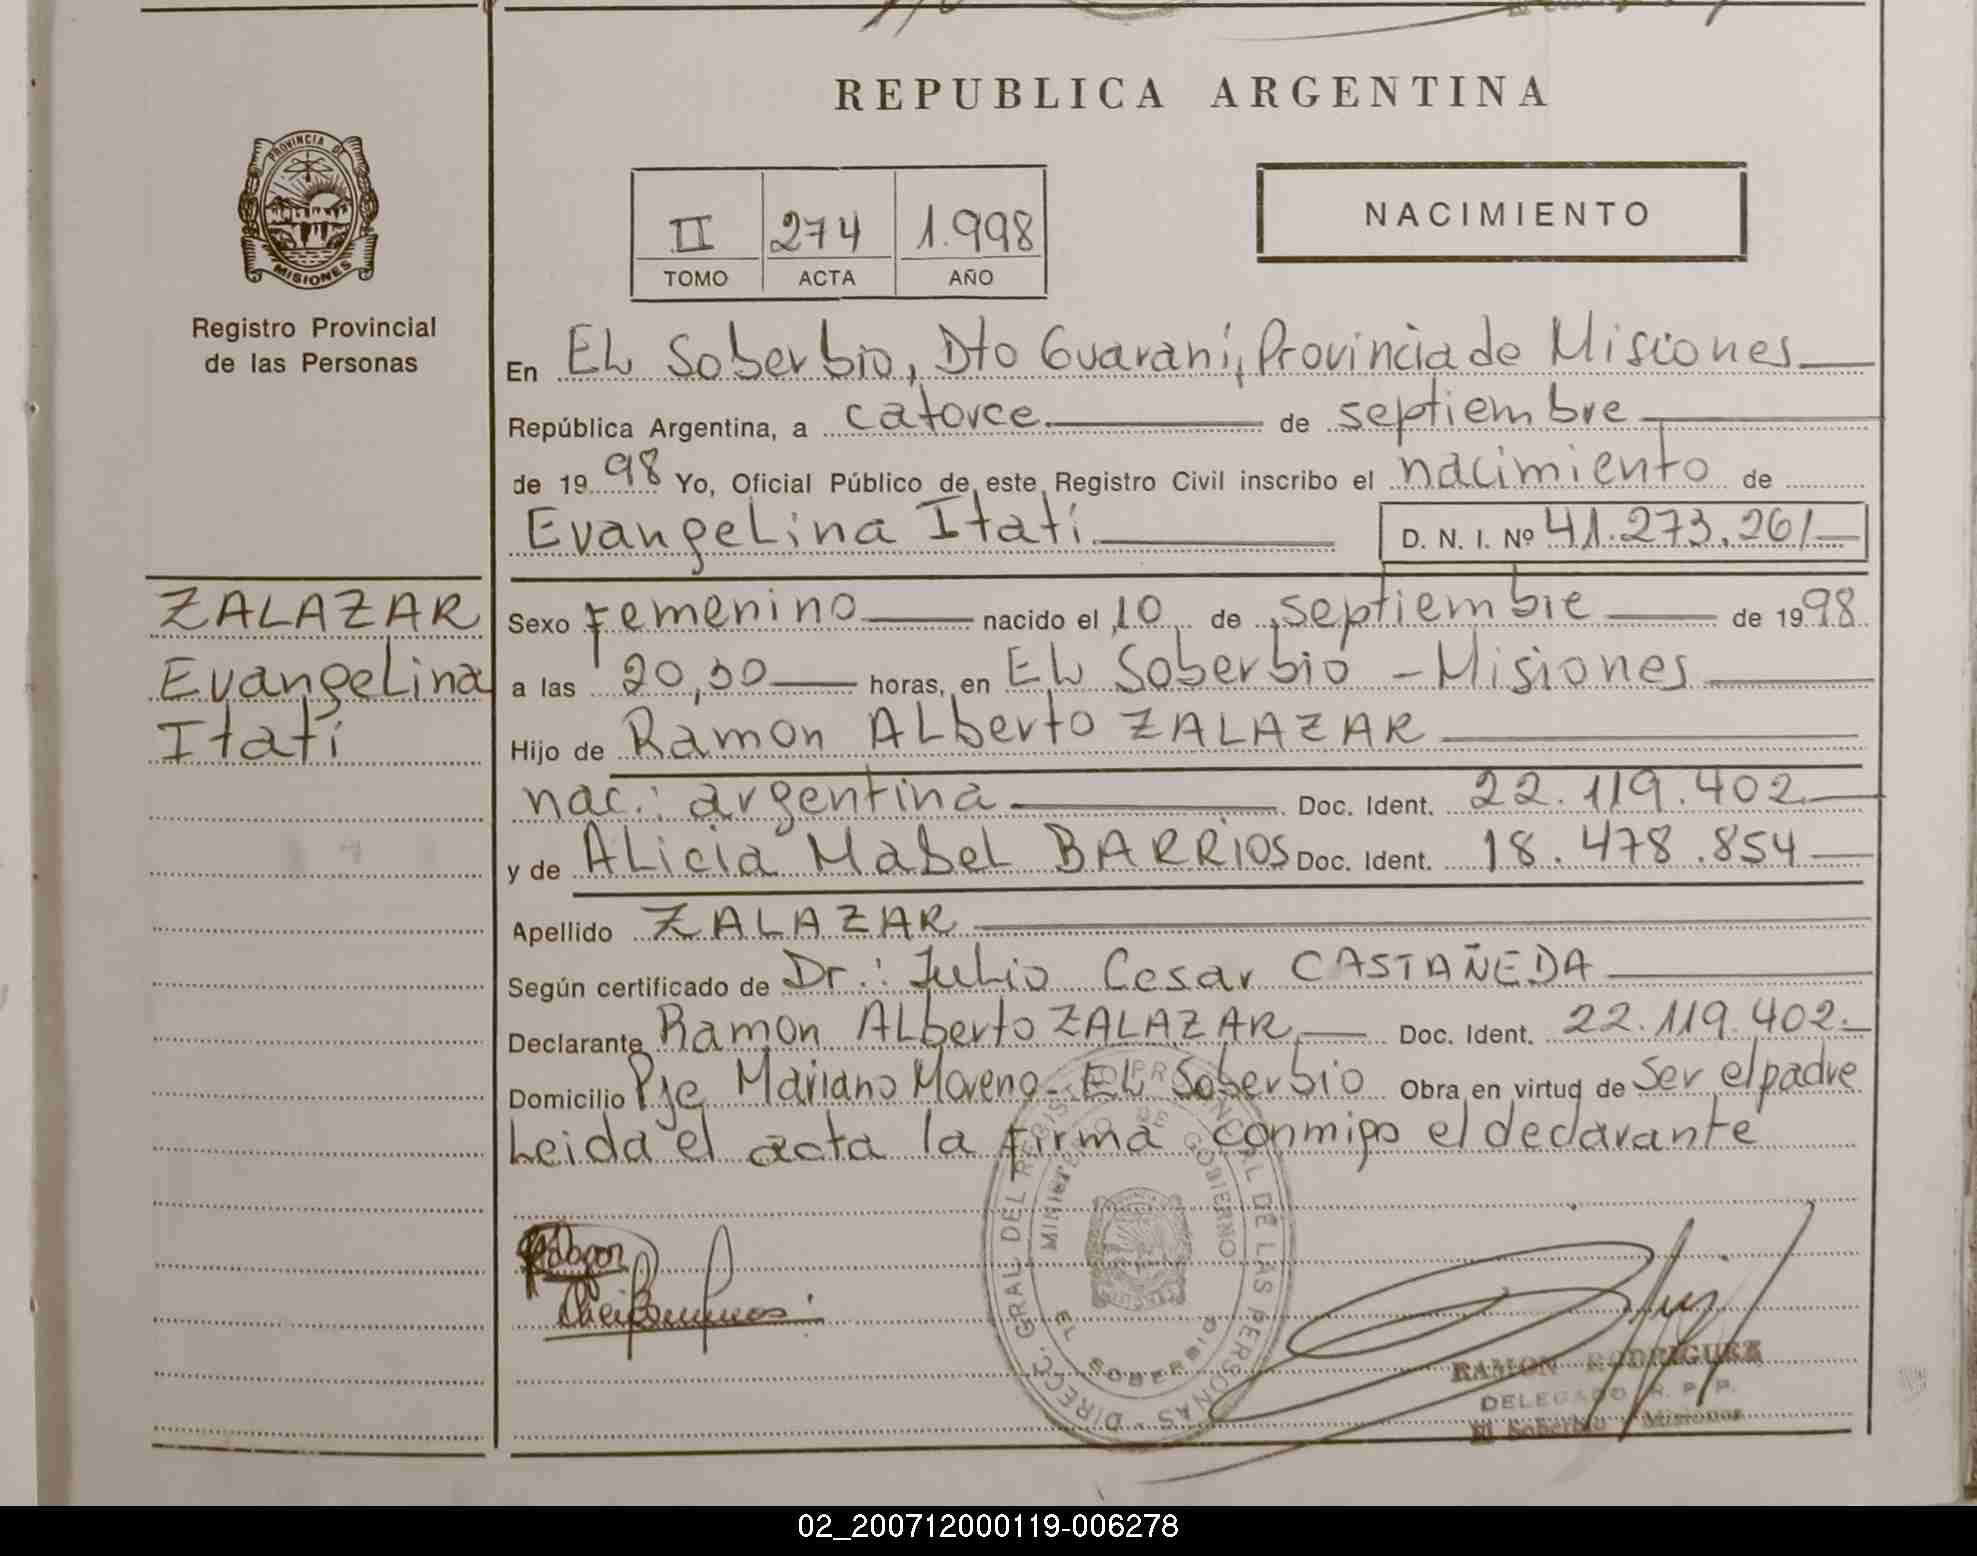 REPUBLICA ARGENTINA
PROVINCIA DE
MISIONES
Registro Provincial
de las Personas
II 274 1.998
TOMO ACTA AÑO
NACIMIENTO
En EL Soberbio, Dto Guaraní, Provincia de Misiones
República Argentina, a catorce de septiembre
de 1998 Yo, Oficial Público de este Registro Civil inscribo el nacimiento de
Evangelina Itatí D. N. I. Nº 41.273.261
ZALAZAR
Evangelina
Itatí
Sexo Femenino nacido el 10 de septiembre de 1998
a las 20,30 horas, en EL Soberbio - Misiones
Hijo de Ramon ALberto ZALAZAR
nac.: argentina Doc. Ident. 22.119.402
y de ALicia MabeL BARRIOS Doc. Ident. 18.478.854
Apellido ZALAZAR
Según certificado de Dr.: Julio Cesar CASTAÑEDA
Declarante Ramon ALberto ZALAZAR Doc. Ident. 22.119.402
Domicilio Pje Mariano Moreno - EL Soberbio Obra en virtud de Ser el padre
Leida el acta la firma conmigo el declarante
DIRECC. GRAL DEL REGISTRO PROVINCIAL DE LAS PERSONAS
MINISTERIO DE GOBIERNO
EL SOBERBIO
RAMON RODRIGUEZ
DELEGADO R. P. P.
El Soberbio - Misiones
02_200712000119-006278